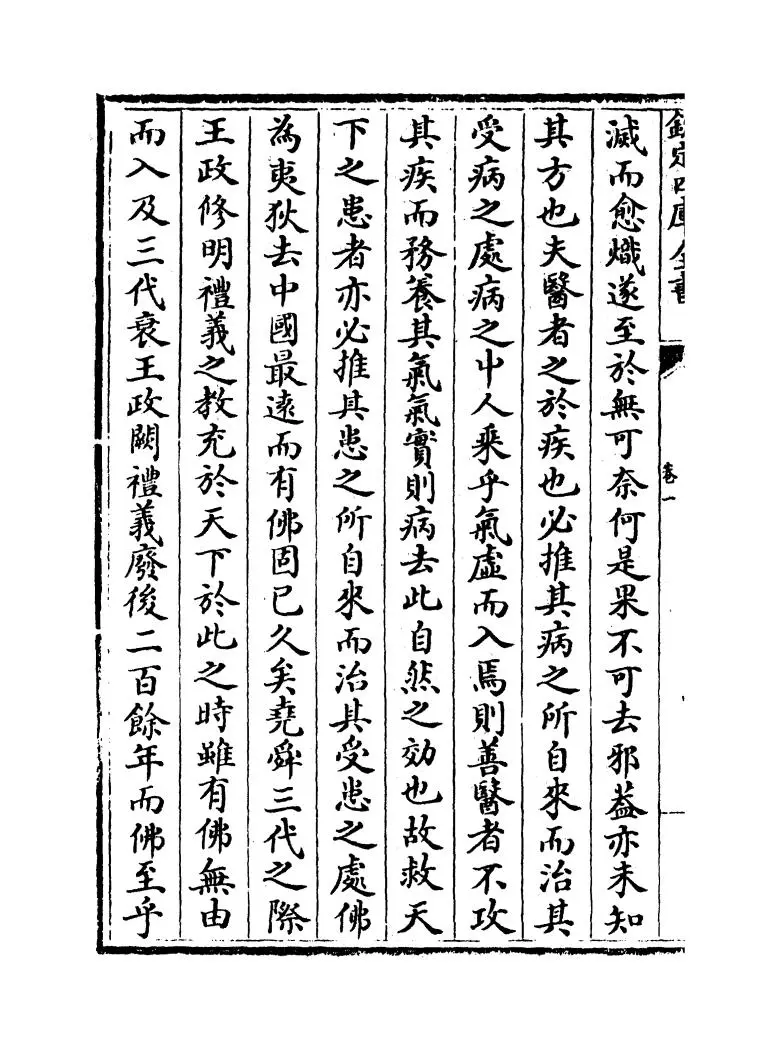 欽定四庫全書
卷一
滅而愈熾遂至於無可奈何是果不可去邪葢亦未知
其方也夫醫者之於疾也必推其病之所自來而治其
受病之處病之中人乘乎氣虛而入焉則善醫者不攻
其疾而務養其氣氣實則病去此自然之効也故救天
下之患者亦必推其患之所自來而治其受患之處佛
為夷狄去中國最逺而有佛固已久矣堯舜三代之際
王政修明禮義之教充於天下於此之時雖有佛無由
而入及三代衰王政闕禮義廢後二百餘年而佛至乎